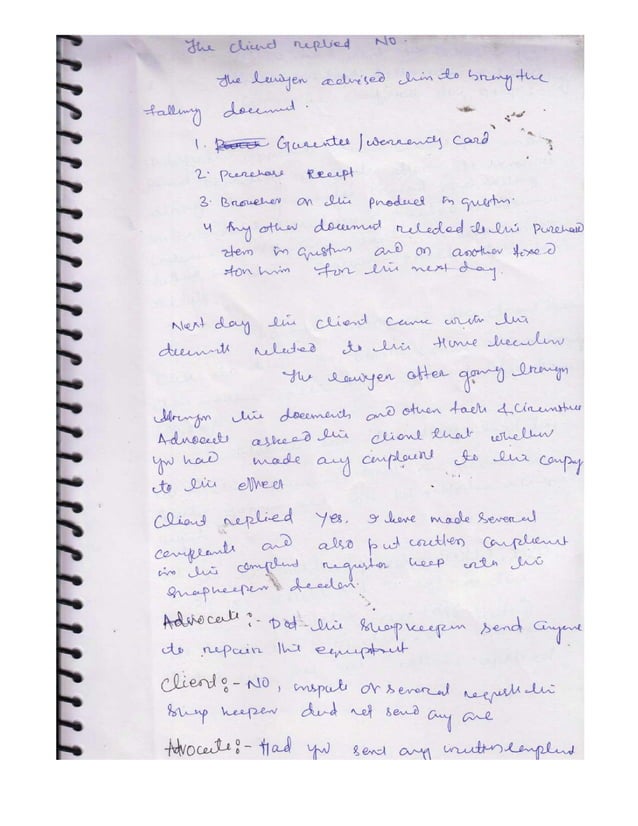 The client replied No.
The lawyer advised him to bring the
following document.
1. Garentee/warrenty card
2. Purchase Receipt
3. Broucher on the product in question.
4 Any other document releded to the Purchased
item in question and on another fixed
for him for the next day.
Next day the client came with the
documents related to the Home
The lawyer after going through
through the documents and other facts & Circumstances
Advocate asked the client that whether
you had made any complaint to the company
to the effect
Client replied Yes, I have made several
complaints and also put written complient
in the complaint register keep with the
shopkeeper dealer.
Advocate:- Did the shopkeeper send anyone
to repair the equiptment
Client:- No, inspite of several request the
shop keeper did not send any one
Advocate:- Had you send any written complaint